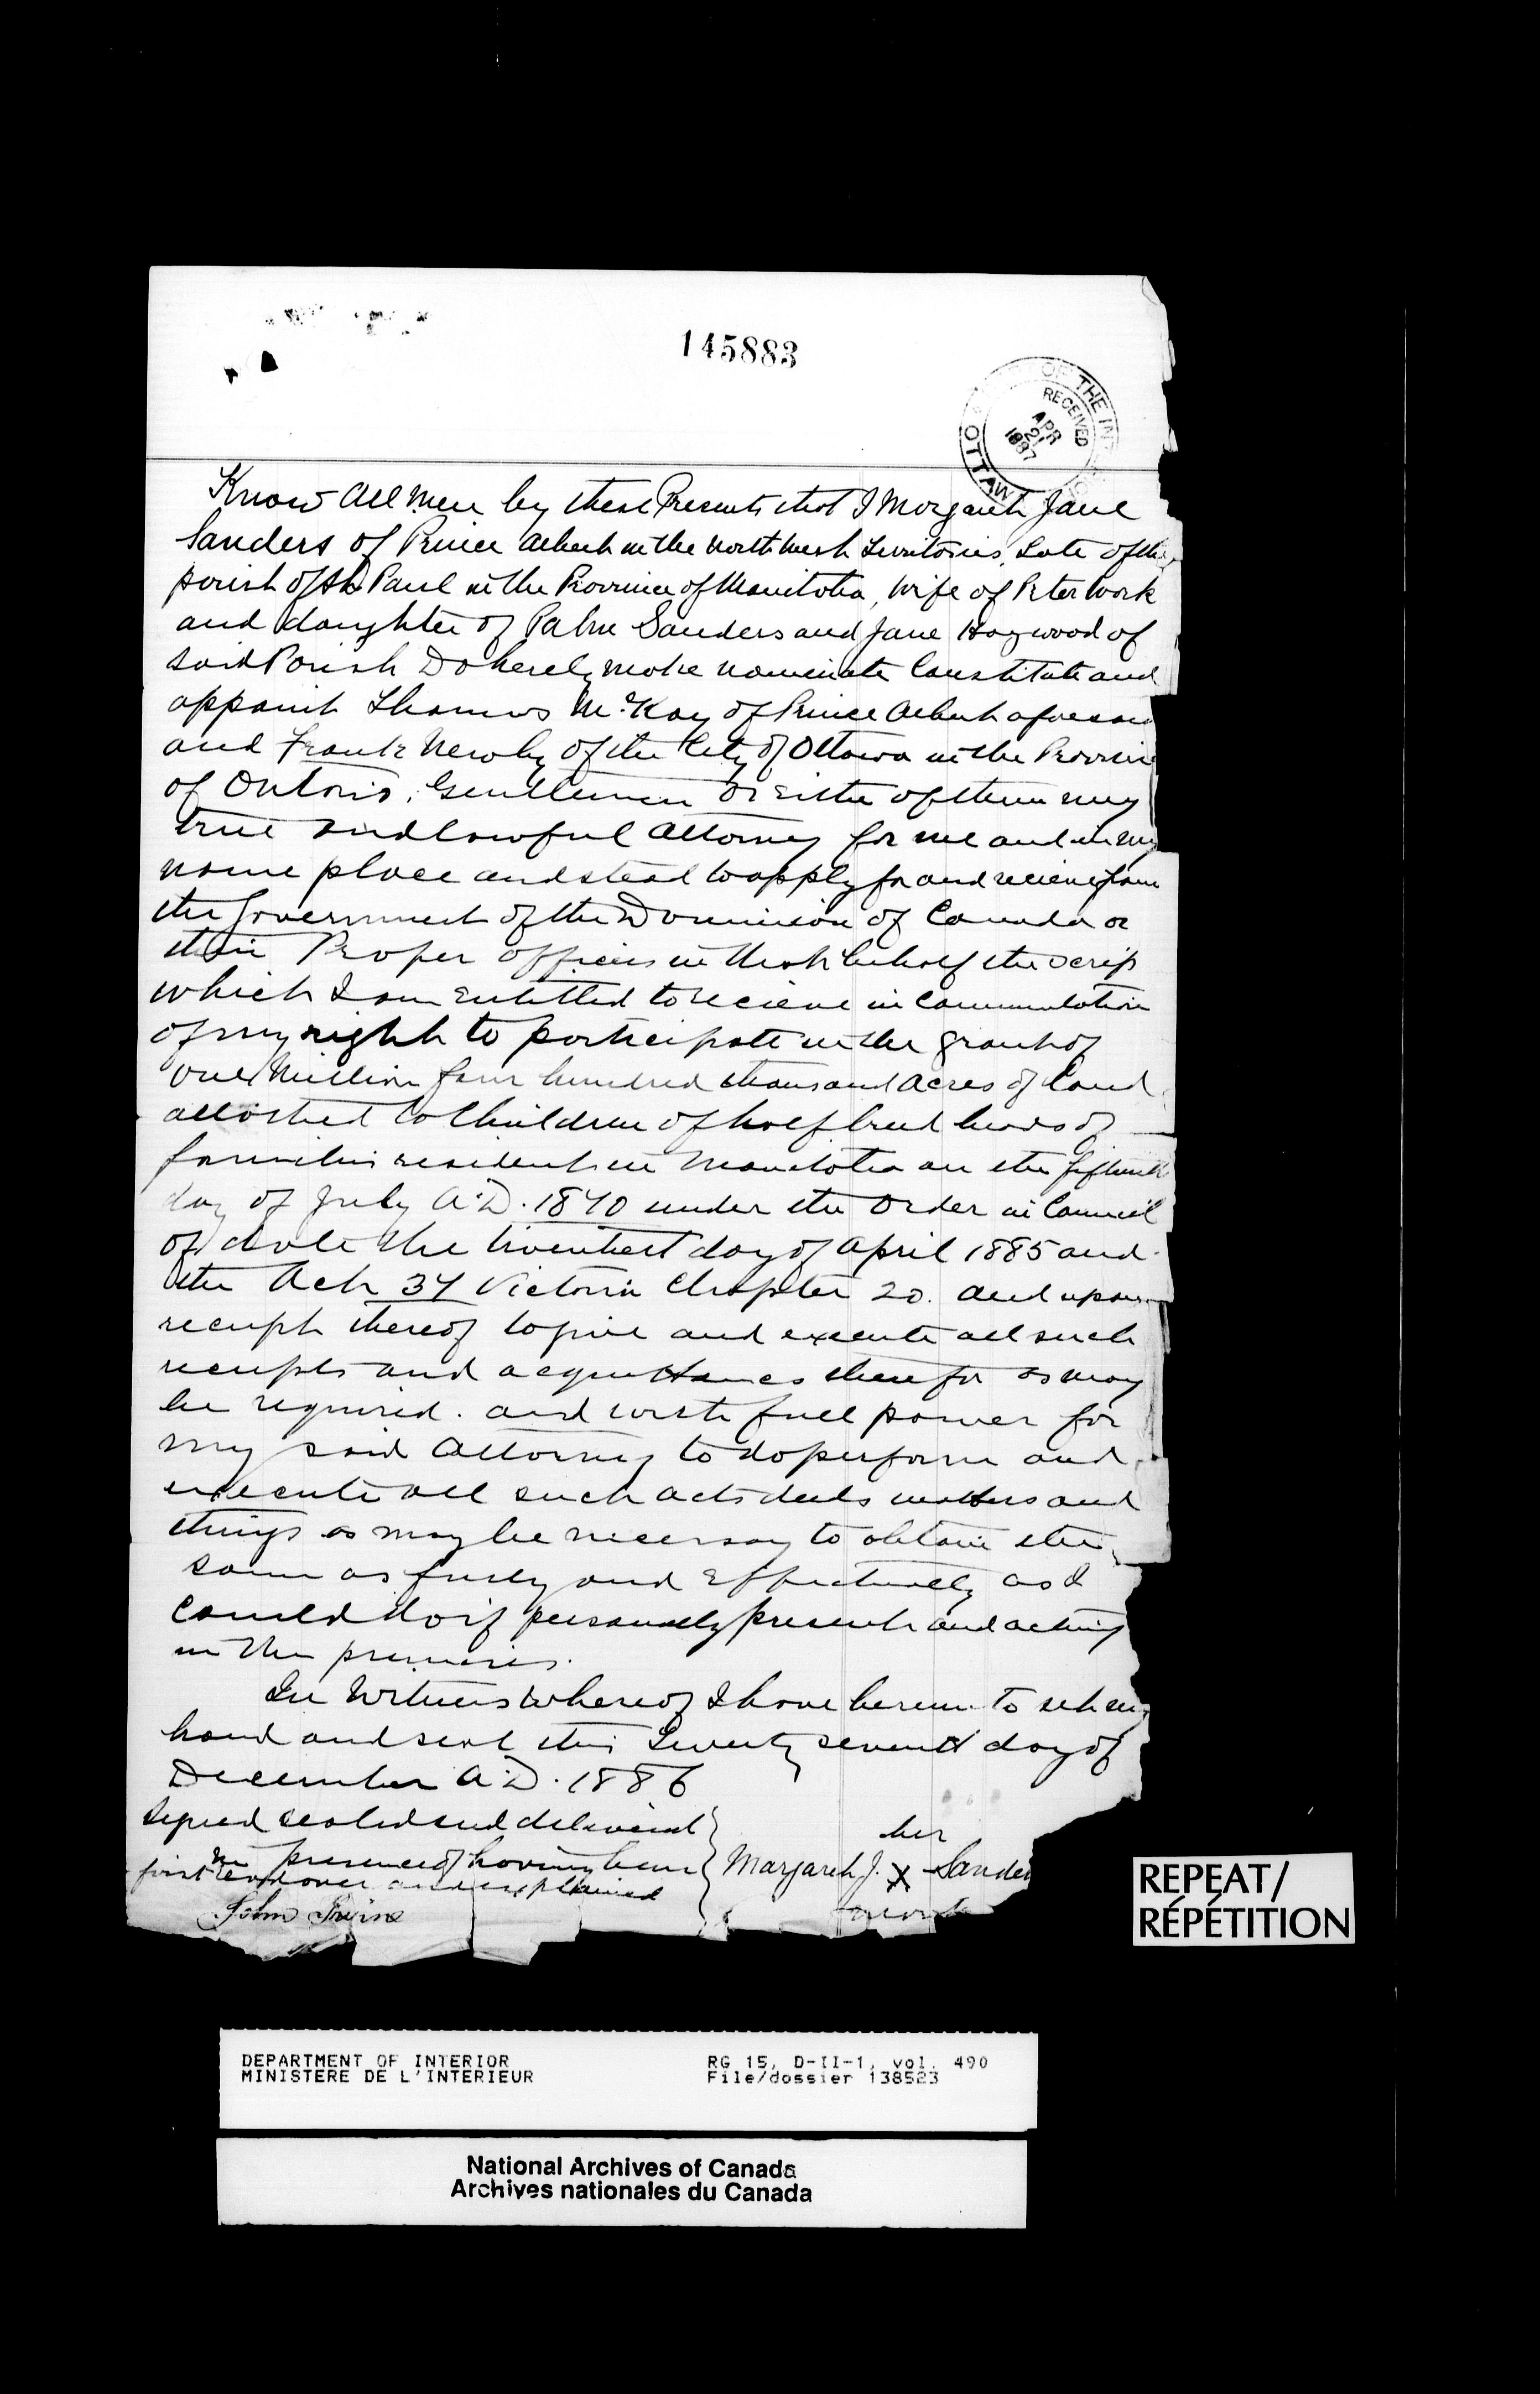 145883
OF THE IN
RECEIVED
APR
21
1887
OTTAW
Know All Men by these Presents that I Margaret Jane
Sanders of Prince Albert in the North West Territories, Late of the
parish of St Paul in the Province of Manitoba, Wife of Peter Work
and daughter of Palm Sanders and Jane Haywood of
said Parish Do hereby make nominate Constitute and
appoint Thomas McKay of Prince Albert aforesaid
and Frank Newby of the City of Ottawa in the Province
of Ontario, Gentlemen or Either of them my
true and lawful Attorney for me and in my
name place and stead to apply for and recieve from
the Government of the Dominion of Canada or
their Proper officers in that behalf the scrip
which I am Entitled to recieve in Commutation
of my right to participate in the grant of
One Million four hundred thousand Acres of Land
allotted to Children of half breed heads of
families resident in Manitoba on the fifteenth
day of July A.D. 1870 under the Order in Council
of date the twentieth day of April 1885 and
the Act 37 Victoria Chapter 20. and upon
receipt thereof to give and execute all such
receipts and acquittances therefor as may
be required. and with full power for
my said Attorney to do perform and
execute all such acts deeds matters and
things as may be necessary to obtain the
same as fully and Effectually as I
Could do if personally present and acting
in the premises.
In Witness Whereof I have hereunto set my
hand and seal this Twenty seventh day of
December A.D. 1886
Signed sealed and delivered
in presence of having been
first read over and explained
John Irvine
her
Margaret J. X Sander
mark
REPEAT/
RÉPÉTITION
DEPARTMENT OF INTERIOR
MINISTERE DE L'INTERIEUR
RG 15, D-II-1, vol. 490
File/dossier 138523
National Archives of Canada
Archives nationales du Canada